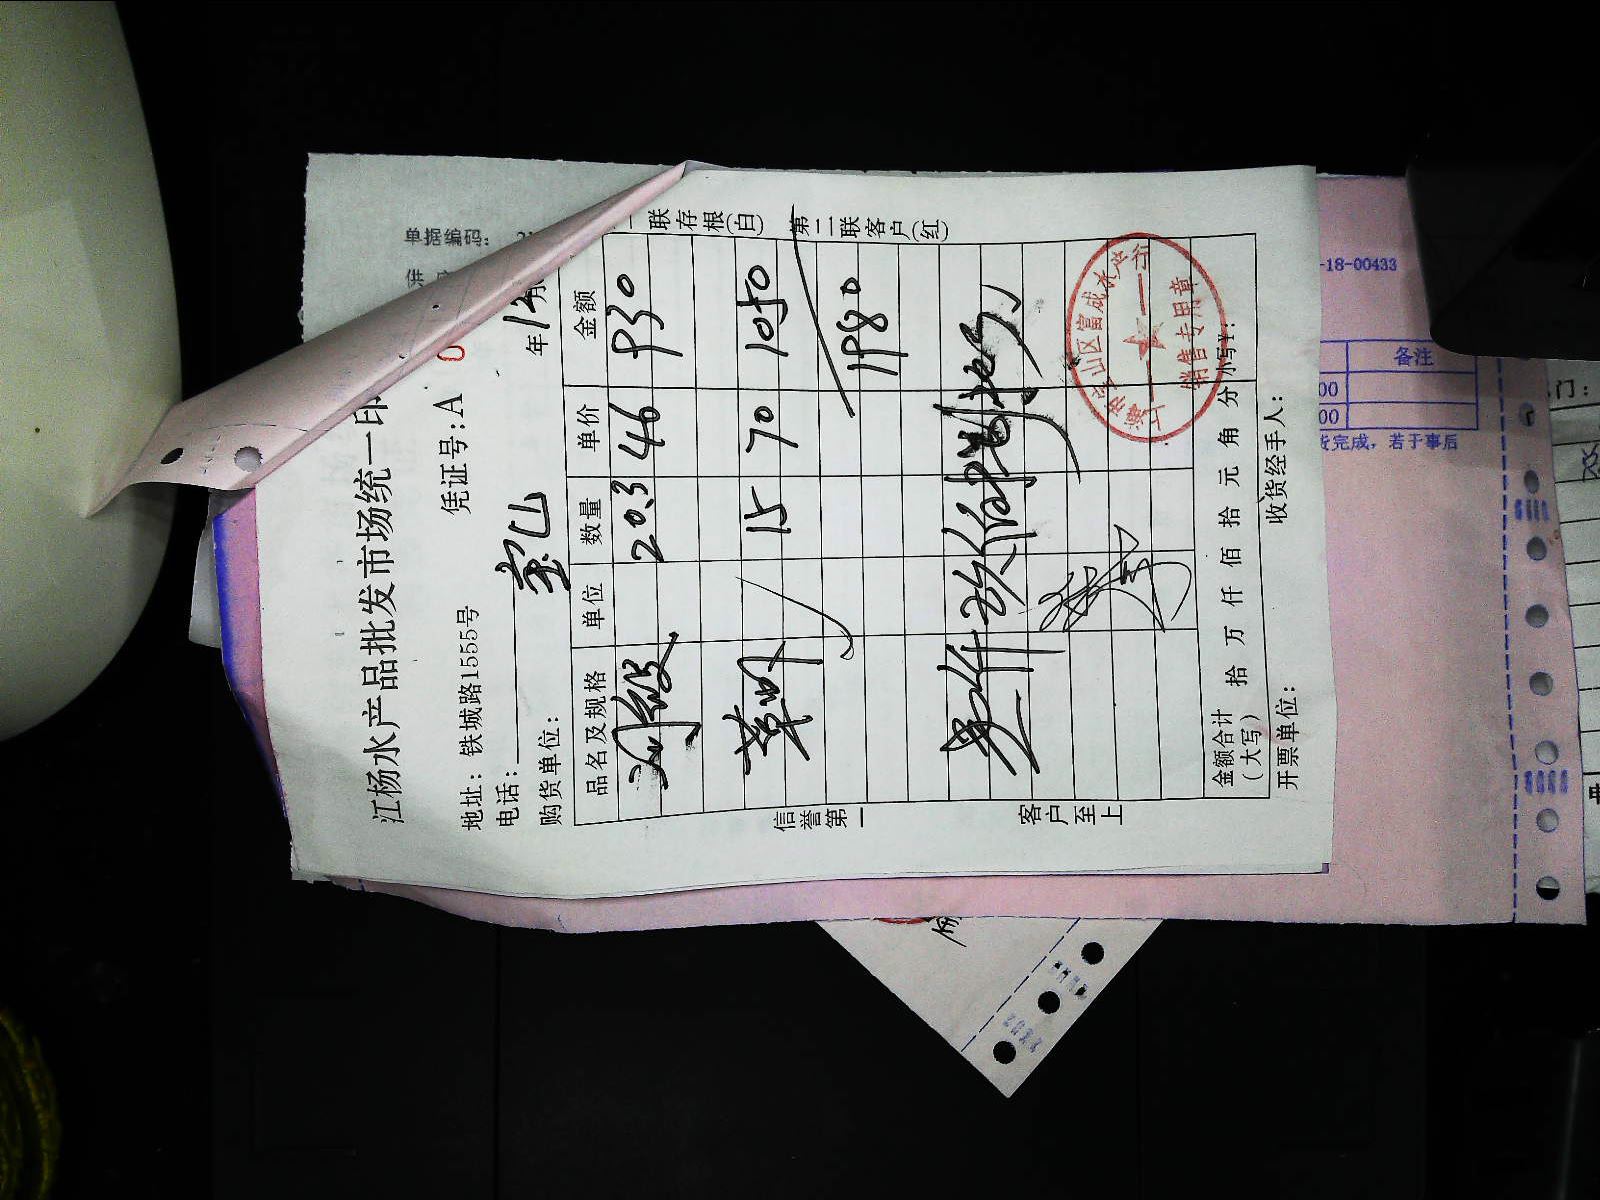 单据编码:
供
江杨水产品批发市场统一印
凭证号:A 0
地址: 铁城路1555号
电话:
年 12 月
购货单位:
品名及规格 单位 数量 单价 金额
20.3 46 930
草虾 15 70 1050
1980
壹仟玖佰捌拾
金额合计(大写) 拾 万 仟 佰 拾 元 角 分 小写¥:
开票单位: 收货经手人:
信誉第一
客户至上
一联存根(白) 第二联客户(红)
上海市宝山区富成水产
销售专用章
-18-00433
备注
00
00
完成, 若于事后
门: